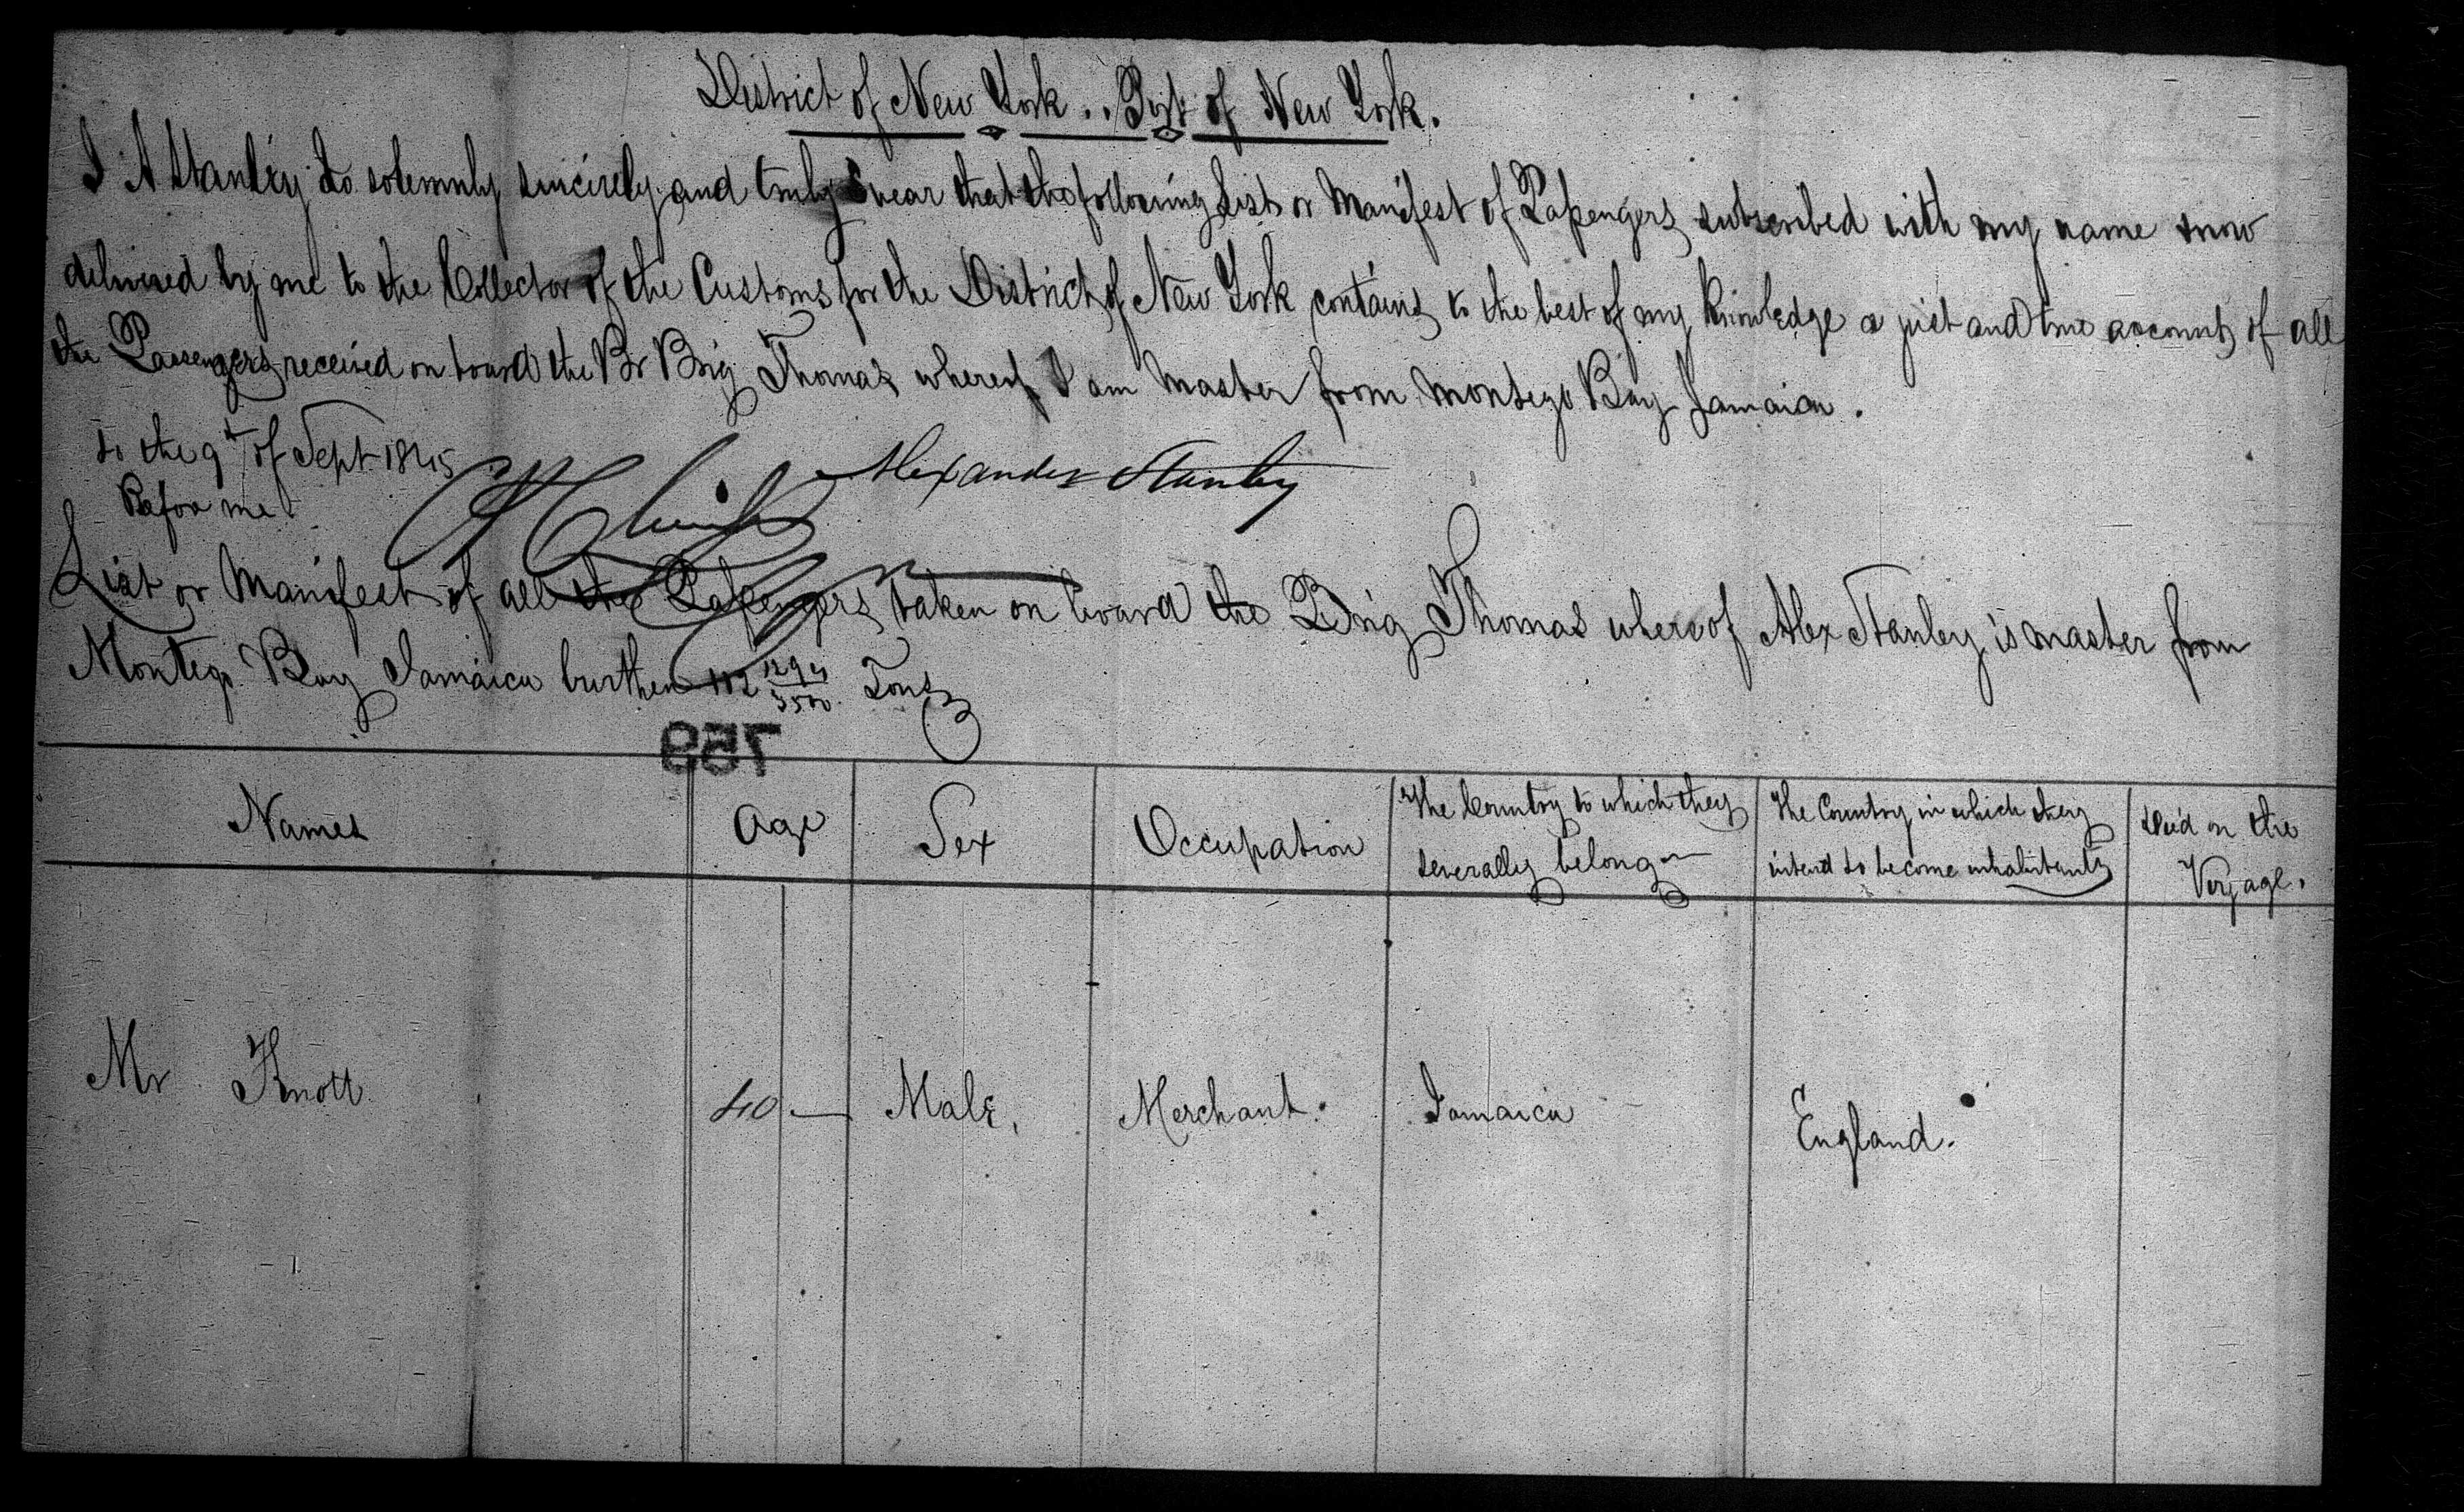 District of New York .. Port of New York.
I A Stanley do solemnly sincerely and truly Swear that the following List or Manifest of Passengers subscribed with my name now
delivered by me to the Collector of the Customs for the District of New York contains to the best of my knowledge a just and true account of all
the Passengers received on board the Br Brig Thomas whereof I am Master from Montego Bay Jamaica .
to the 9th of Sept 1845
Alexander Stanley
Before me
List or Manifest of all the Passengers taken on board the Brig Thomas whereof Alex Stanley is master from
Montego Bay Jamaica burthen Tons
759
Names Age Sex Occupation The Country to which they severally belong The Country in which they intend to become inhabitants Died on the Voyage.
Mr Knott 40 — Male. Merchant. Jamaica England.